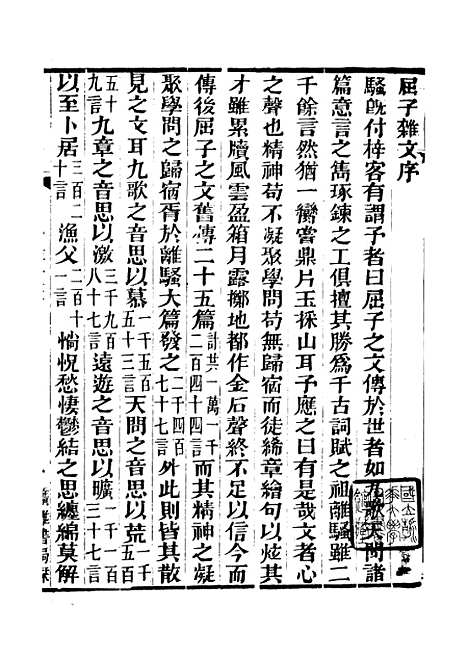 屈子雜文序
騷旣付梓客有謂予者曰屈子之文傳於世者如九歌天問諸
篇意言之雋琢鍊之工俱擅其勝爲千古詞賦之祖離騷雖二
千餘言然猶一臠嘗鼎片玉採山耳予應之曰有是哉文者心
之聲也精神苟不凝聚學問苟無歸宿而徒絺章繪句以炫其
才雖累牘風雲盈箱月露擲地都作金石聲終不足以信今而
傳後屈子之文舊傳二十五篇計共一萬一千二百四十四言而其精神之凝
聚學問之歸宿胥於離騷大篇發之二千四百七十七言外此則皆其散
見之文耳九歌之音思以慕一千五百五十三言天問之音思以荒一千五百
五十九言九章之音思以激三千九百八十七言遠遊之音思以曠一千一百三十七言
以至卜居三百二十言漁父二百十一言惝怳愁悽鬱結之思纏綿莫解